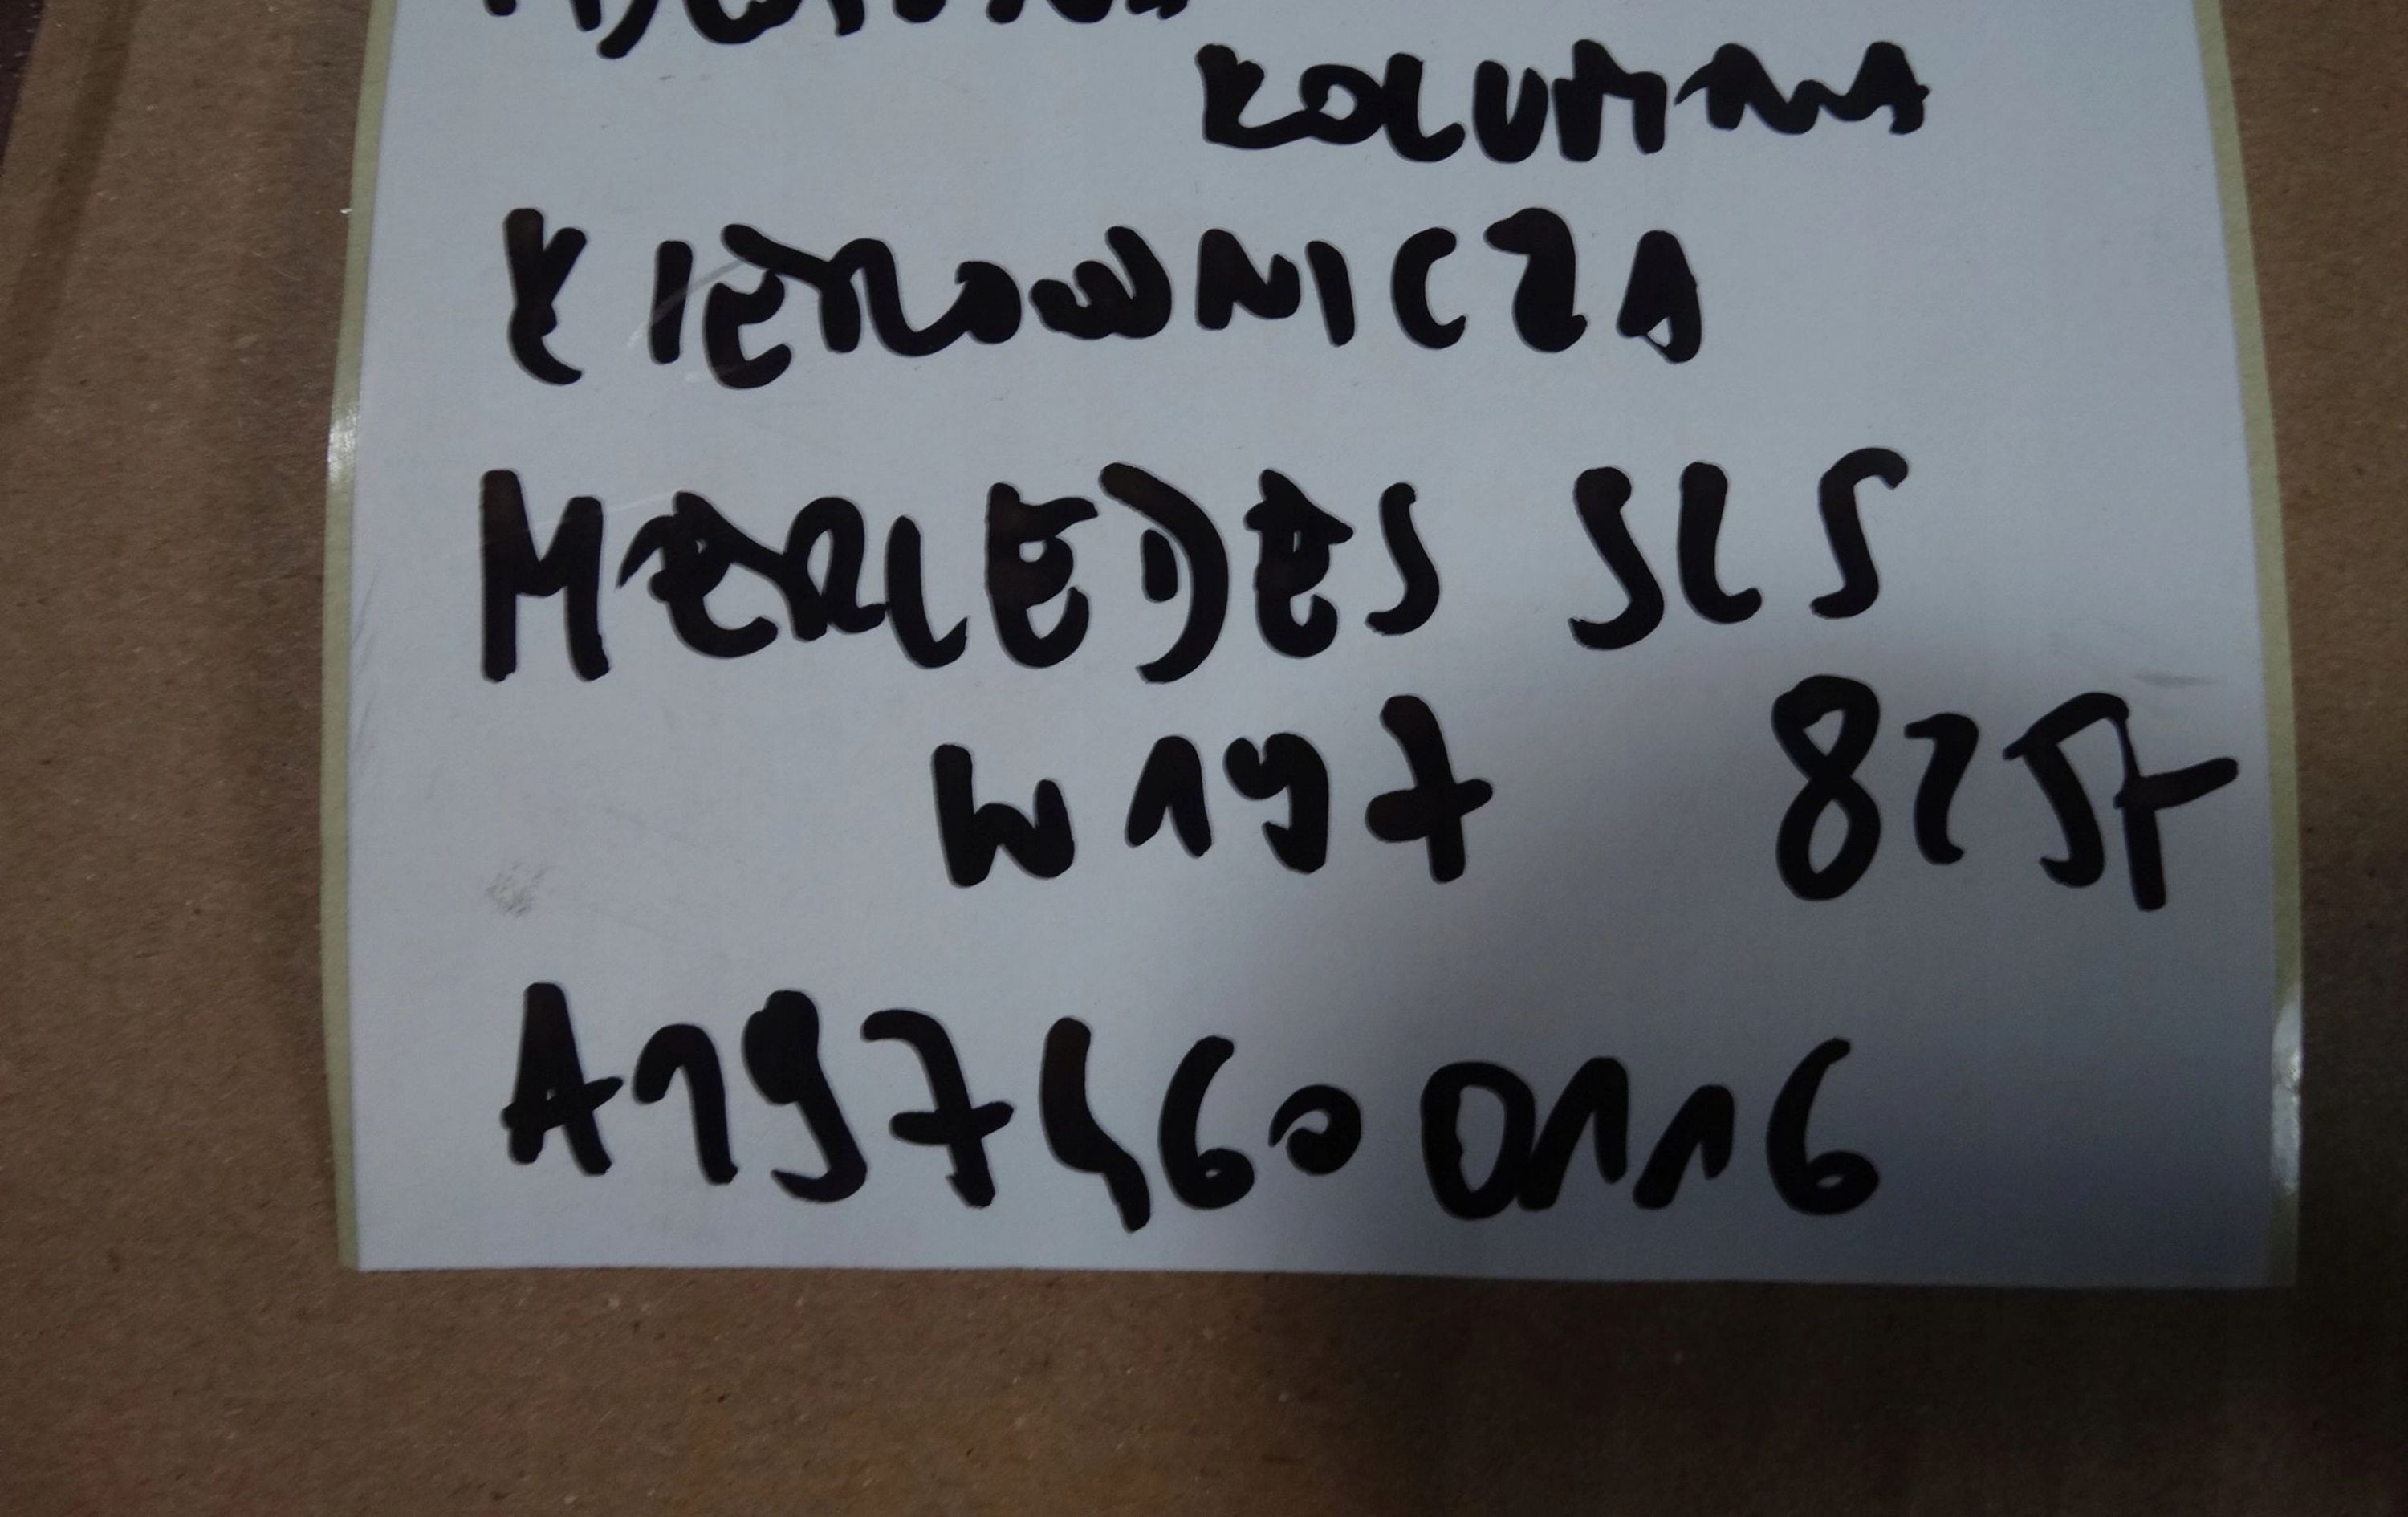 KOLUMNA
KIEROWNICZA
MERCEDES SLS
W197 8257
A1974600116